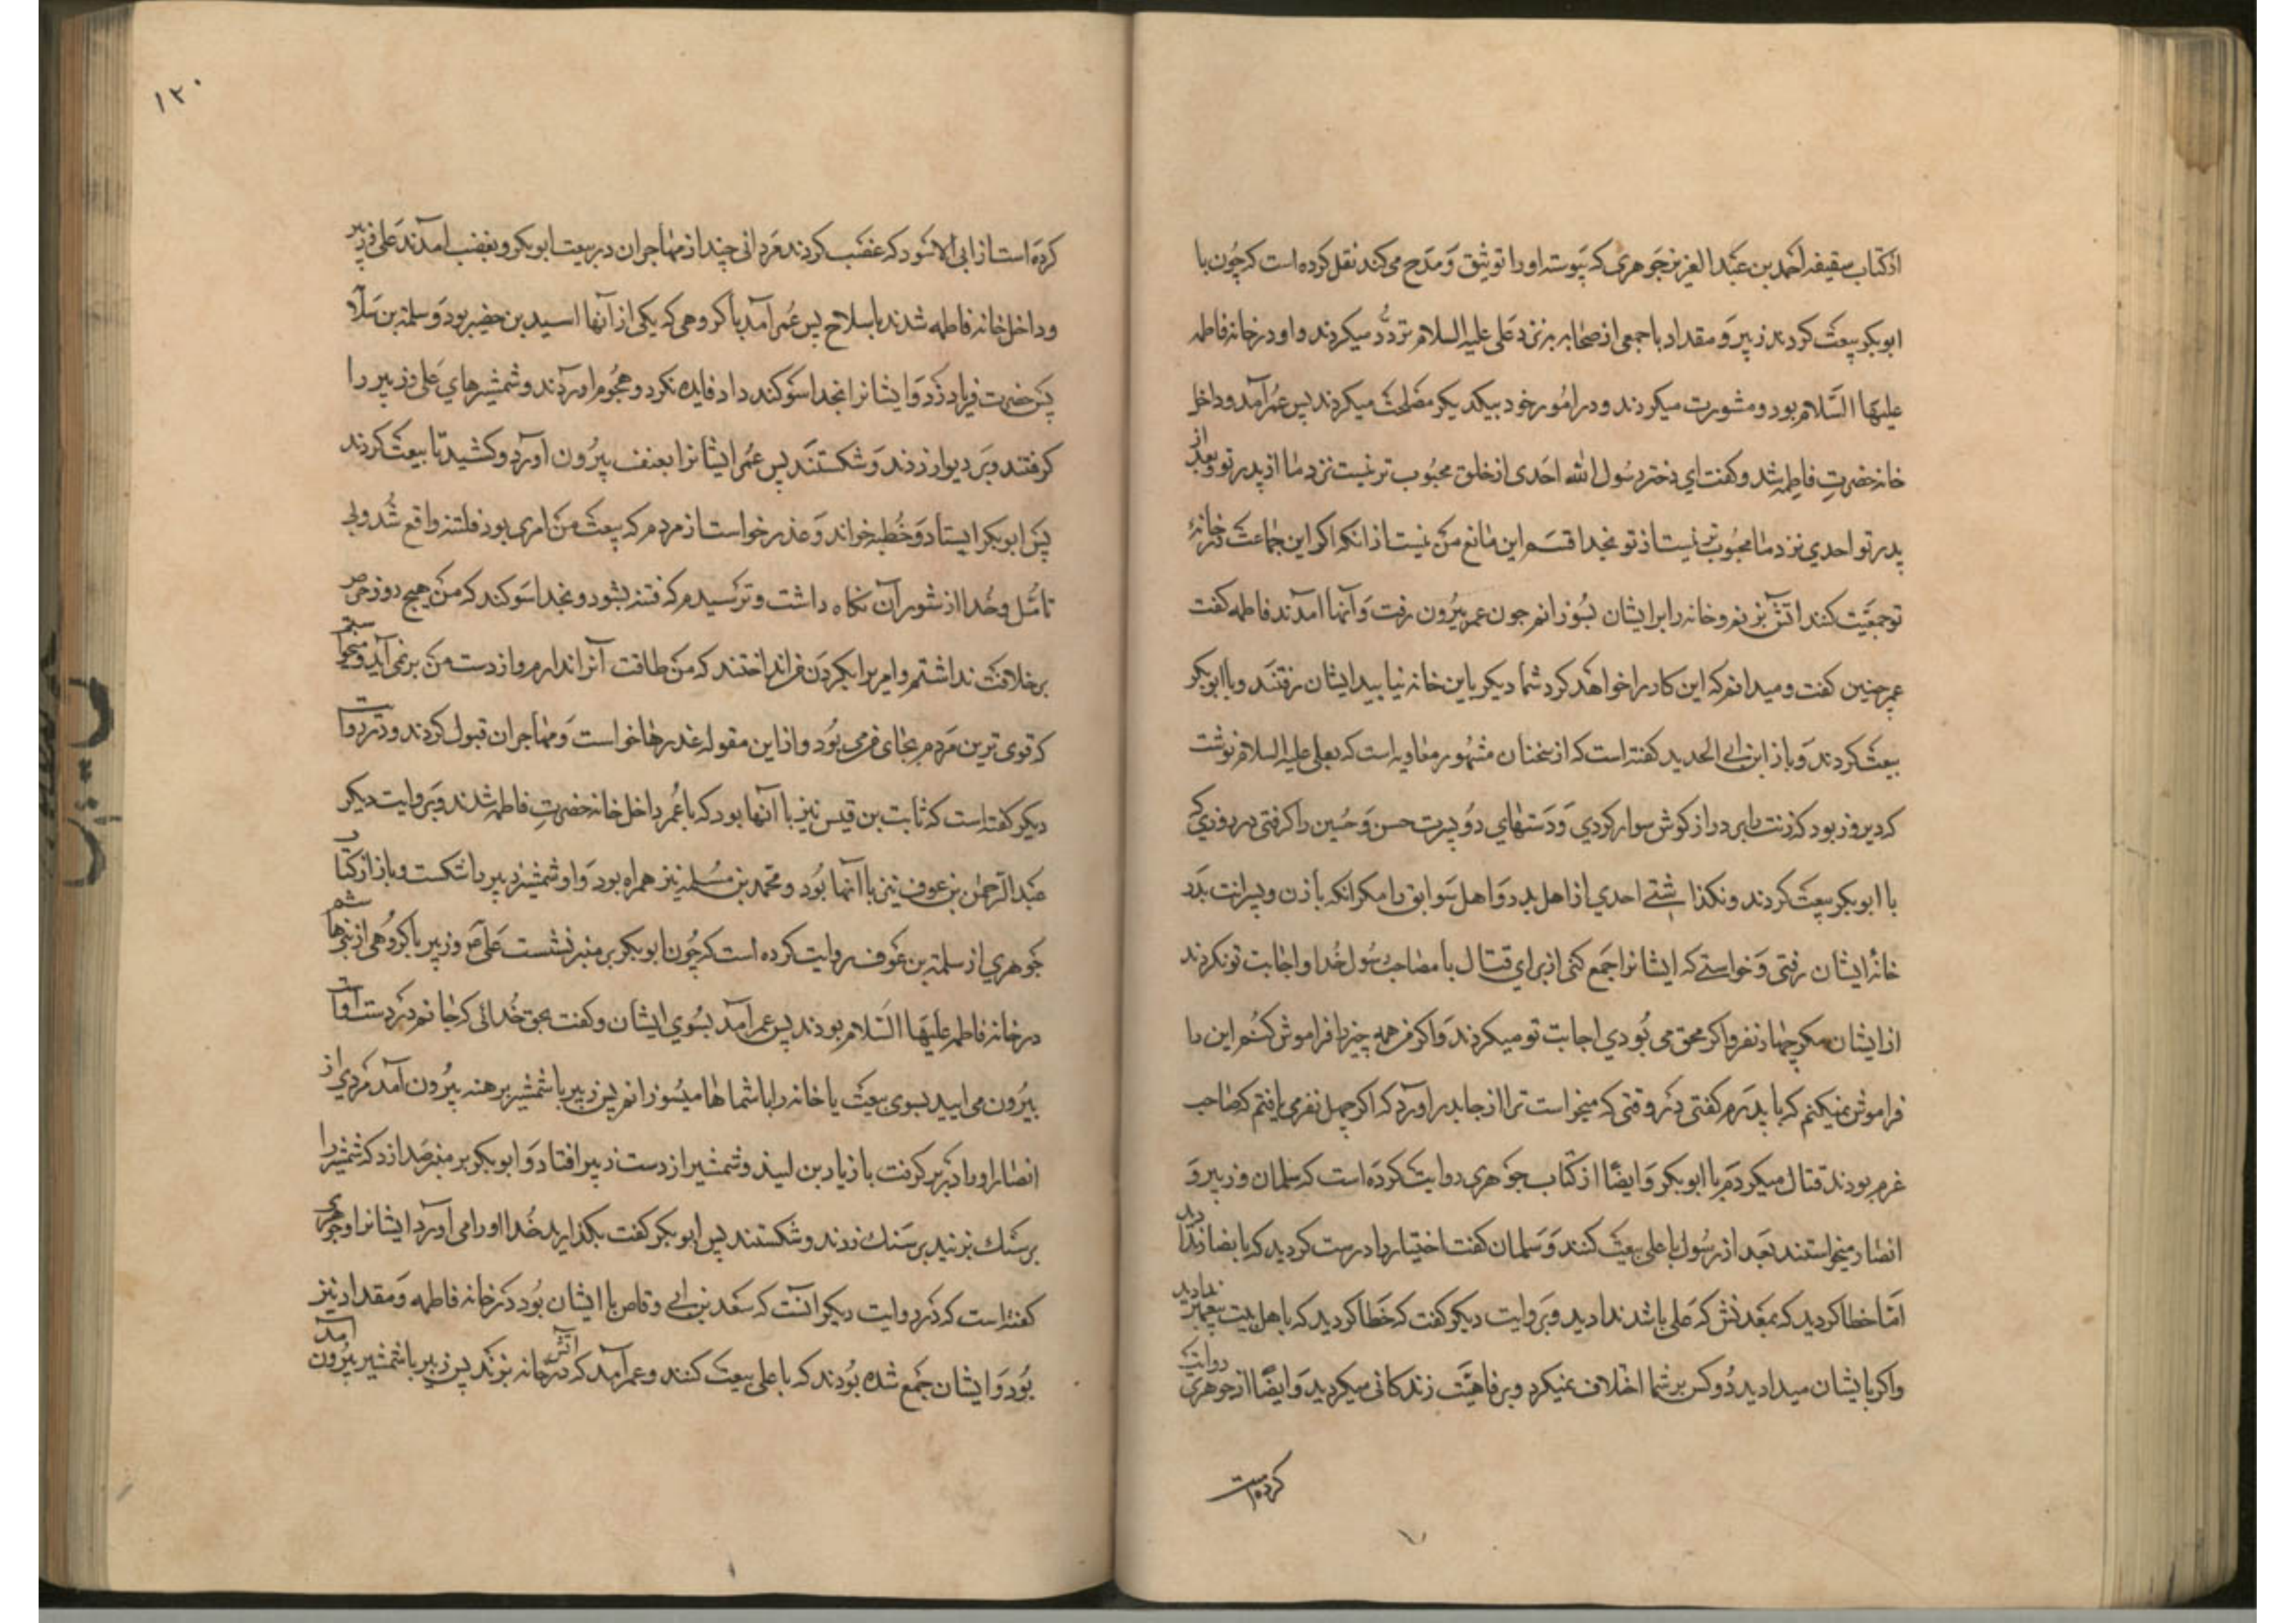 از کتاب سقیفه احمد بن عبد العزیز جوهری که پیوسته اورا توثیق و مدح می کند نقل کرده است که چون با
ابوبکر بیعت کردند زبیر و مقداد با جمعی از صحابه بنزد علی علیه السلام تردّد میکردند و او در خانه فاطمه
علیها السّلام بود و مشورت میکردند و در امور خود بیکدیکر مصلحت میکردند پس عمر آمد و داخل
خانه حضرت فاطمه شد و کفت ای دختر رسول الله احدی از خلق محبوب تر نیست نزد ما از پدر تو و بعد از
پدر تو احدي نزد ما محبوب تر نیست از تو بخدا قسم این مانع من نیست از انکه اکر این جماعت در خانهٔ
تو جمعیّت کنند اتش بزنم و خانه را بر ایشان بسوزانم چون عمر بیرون رفت و آنها آمدند فاطمه کفت
عمر چنین کفت و میدانم که این کار را خواهد کرد شما دیکر باین خانه نیایید ایشان رفتند و با ابوبکر
بیعت کردند و باز ابن ابی الحدید کفته است که از سخنان مشهور معاویه است که بعلی علیه السلام نوشت
که دیروز بود که زنت را بر دراز کوش سوار کردي و دستهاي دو پسرت حسن و حسین را کرفتی در روزي که
با ابوبکر بیعت کردند و نکذاشتی احدي از اهل بدر و اهل سوابق را مکر انکه با زن و پسرانت بدر
خانهٔ ایشان رفتی و خواستی که ایشانرا جمع کنی از برای قتال با مصاحب رسول خدا و اجابت تو نکردند
از ایشان مکر چهار نفر و اکر محق می بودي اجابت تو میکردند و اکر من همه چیز را فراموش کنم این را
فراموش نمیکنم که با پدرم کفتی در وقتی که میخواست ترا از جا بدر اورد که اکر چهل نفر می یافتم که صاحب
عزم بودند قتال میکردم با ابوبکر و ایضًا از کتاب جوهري روایت کرده است که سلمان و زبیر و
انصار میخواستند بعد از رسول با علی بیعت کنند و سلمان کفت اختیار را درست کردید که با
امّا خطا کردید که بمعدنش که علی باشد ندادید و بروایت دیکر کفت که خطا کردید که باهل بیت پیغمبر ندادید
و اکر بایشان میدادید دو کس بر شما اختلاف نمیکرد و برفاهیّت زندکانی میکردید و ایضًا از جوهري روایت
کرده است
١٢٠
کرده است از ابی الاسود که غضب کردند مردانی چند از مهاجران در بیعت ابوبکر و بغضب آمدند علی و زبیر
و داخل خانه فاطمه شدند با سلاح پس عمر آمد با کروهی که یکی از آنها اسید بن حضیر بود و سلمة بن سلا
پس حضرت فریاد زد و ایشانرا بخدا سوکند داد فایده نکرد و هجوم اوردند و شمشیرهاي علی و زبیر را
کرفتند و بر دیوار زدند و شکستند پس عمر ایشانرا بعنف بیرون آورد و کشید تا بیعت کردند
پس ابوبکر ایستاد و خطبه خواند و عذر خواست از مردم که بیعت من امری بود فلتة واقع شد و بی
تامّل و خدا از شور آن نکاه داشت و ترسیدم که فتنه بشود و بخدا سوکند که من هیچ روز حرص
بر خلافت نداشتم و امریرا بکردن من انداختند که من طاقت آنرا ندارم و از دست من بر نمی آید و میخواستم
که قوی ترین مردم بجای من می بود و از این مقوله عذرها خواست و مهاجران قبول کردند و در روایت
دیکر کفته است که ثابت بن قیس نیز با آنها بود که با عمر داخل خانه حضرت فاطمه شدند و بروایت دیکر
عبدالرحمن بن عوف نیز با آنها بود و محمد بن مسلمه نیز همراه بود و او شمشیر زبیر را شکست و باز از کتاب
جوهري از سلمة بن عوف روایت کرده است که چون ابوبکر بر منبر نشست علی ع و زبیر با کروهی از بنی هاشم
در خانه فاطمه علیها السّلام بودند پس عمر آمد بسوی ایشان و کفت بحق خدائی که جانم در دست اوست
بیرون می ایید بسوی بیعت یا خانه را با شماها میسوزانم پس زبیر با شمشیر برهنه بیرون آمد مردي از
انصار اورا در بر کرفت با زیاد بن لبید و شمشیر از دست زبیر افتاد و ابوبکر بر منبر صدا زد که شمشیر را
بر سنك بزنید بر سنك زدند و شکستند پس ابوبکر کفت بکذارید خدا اورا می آورد ایشانرا و جوهري
کفته است که در روایت دیکر آنست که سعد بن ابی وقاص با ایشان بود در خانه فاطمه و مقداد نیز
بود و ایشان جمع شده بودند که با علی بیعت کنند و عمر آمد که اتش در خانه بزند پس زبیر با شمشیر بیرون آمد